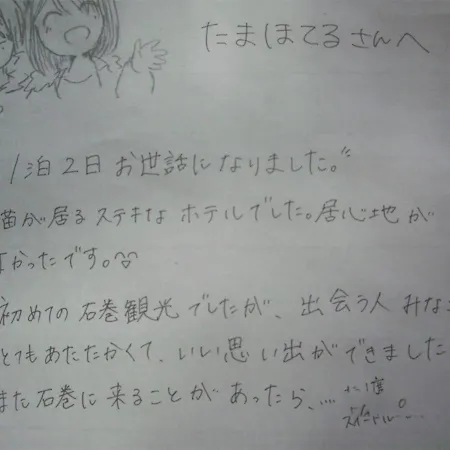 たまほてるさんへ
1泊2日 お世話になりました。
猫が居るステキな ホテルでした。居心地が
よかったです。
初めての 石巻観光でしたが、出会う人 みな
とてもあたたかくて、いい思い出ができました
また石巻に来ることが あったら、....